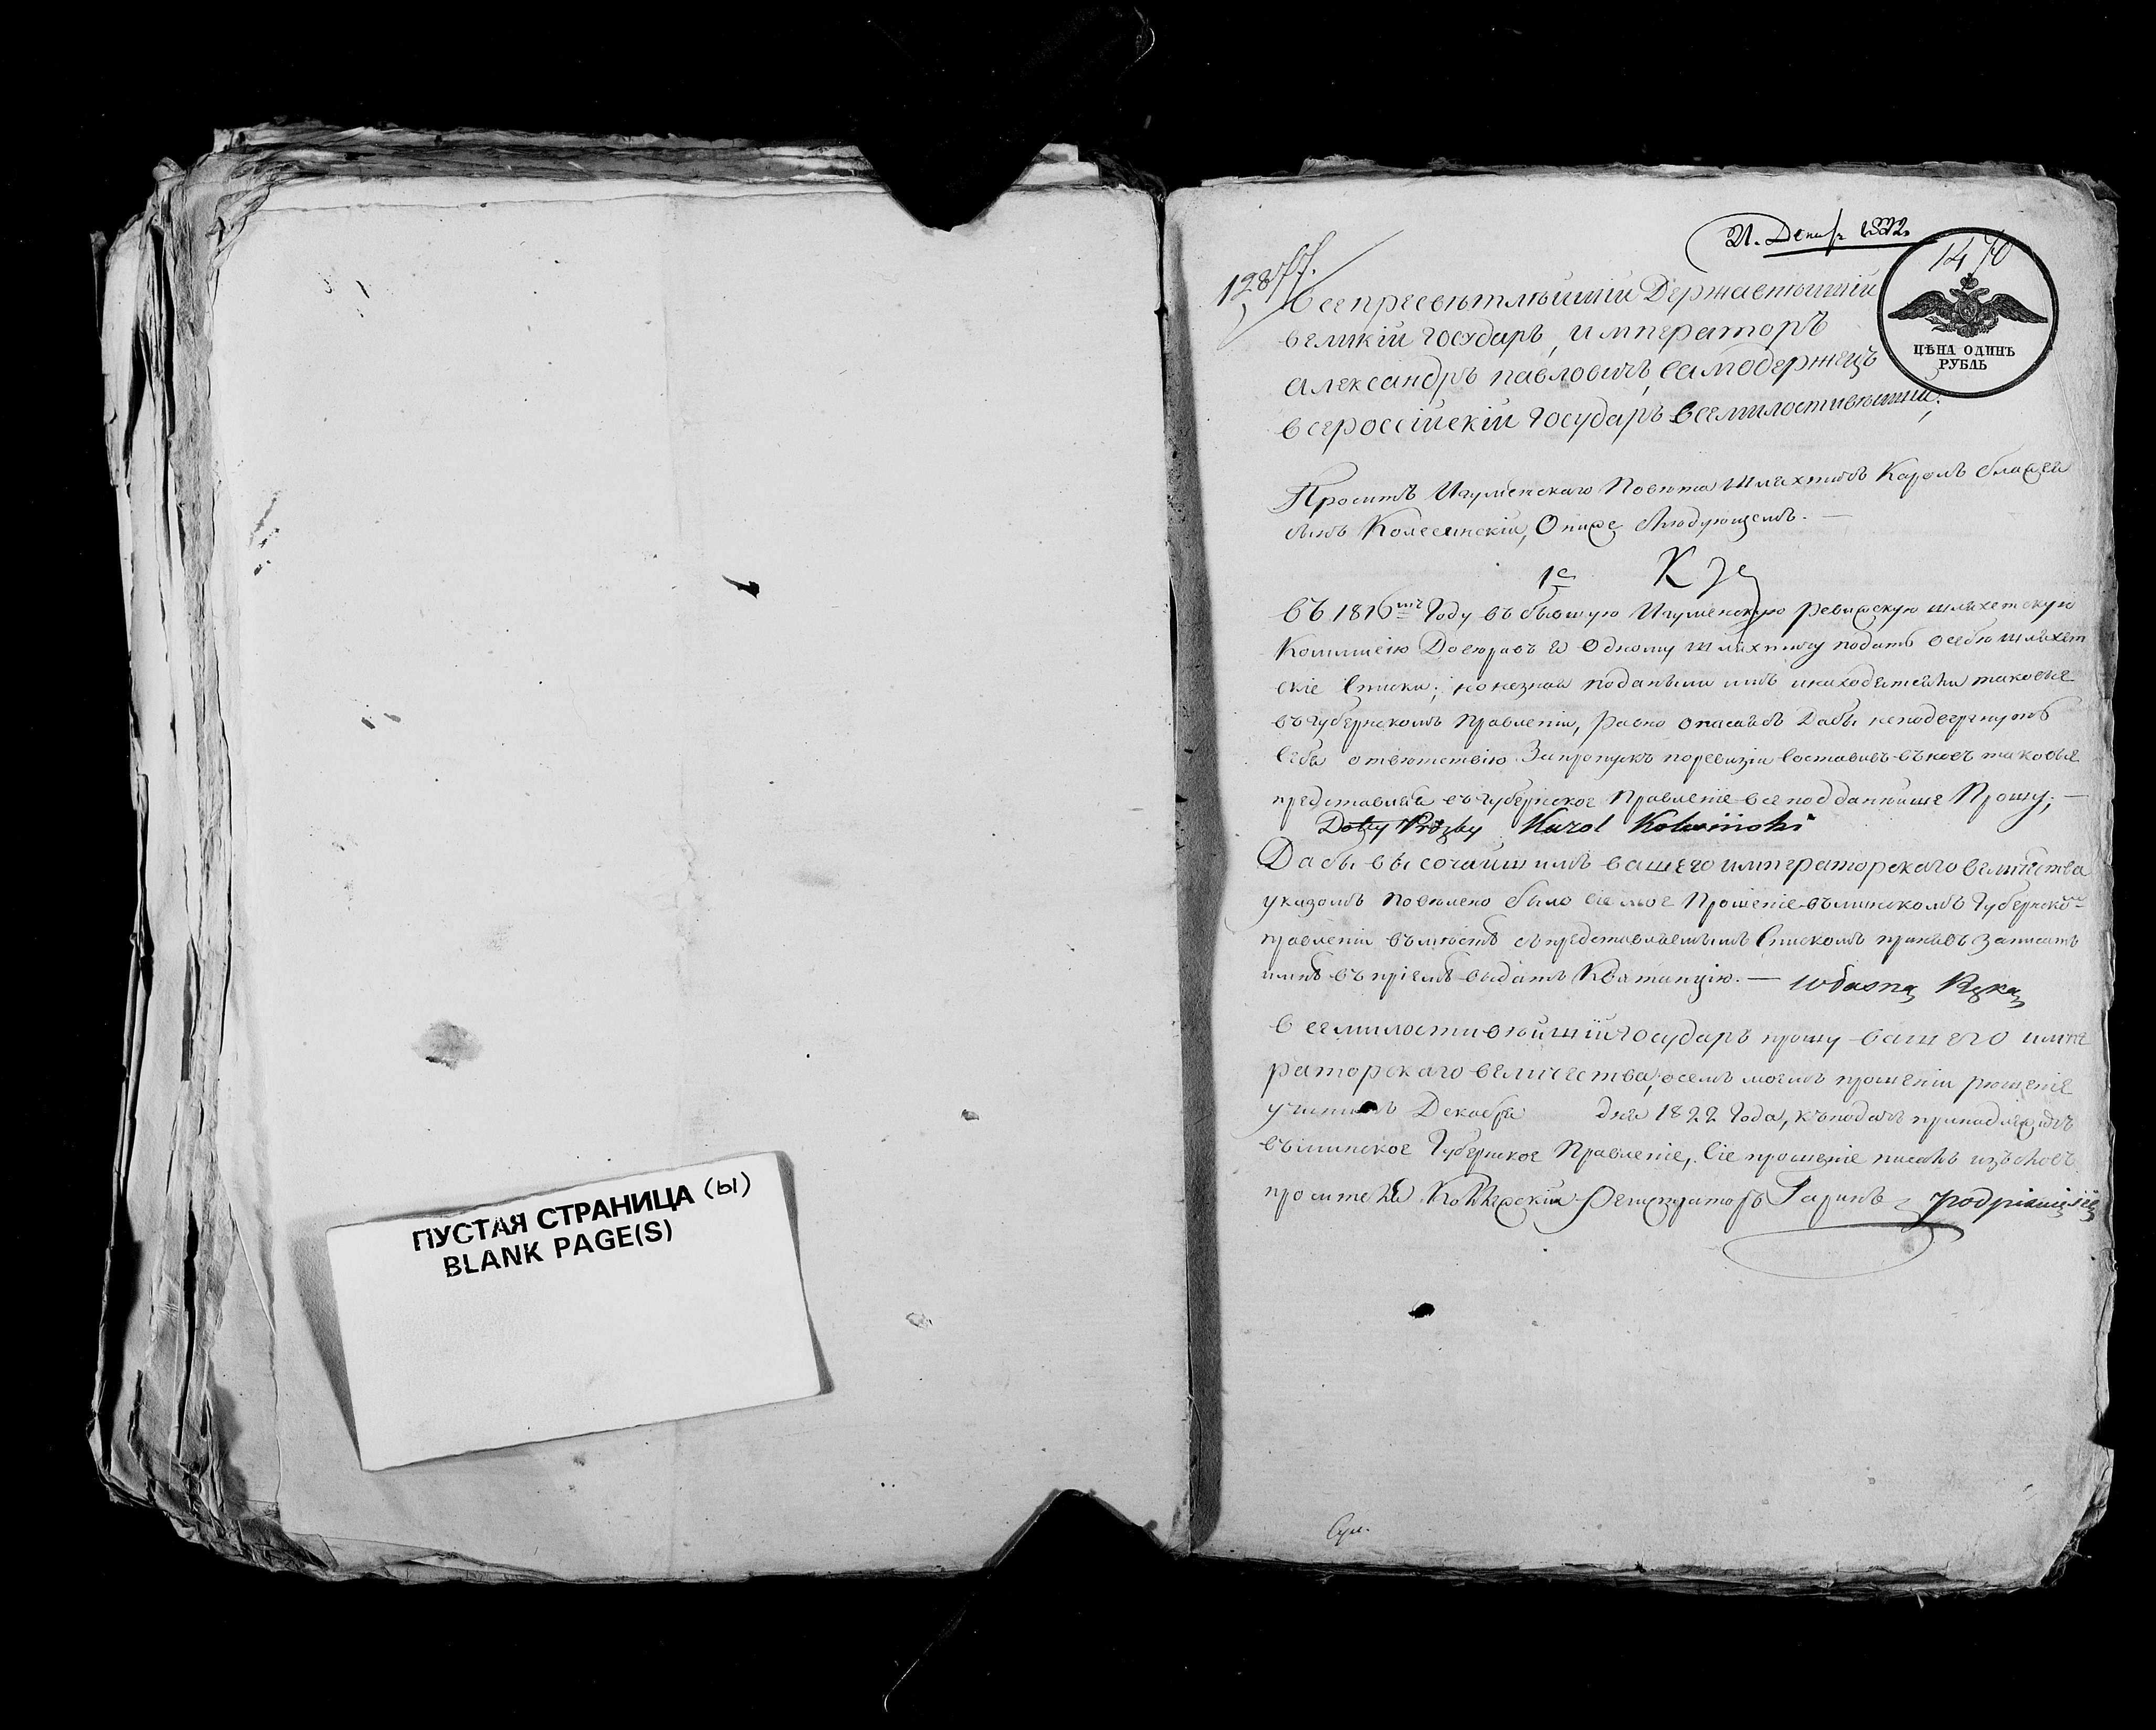 ПУСТАЯ СТРАНИЦА (Ы)
BLANK PAGE(S)
21. Декабр 1822
1470
12877.
ЦѢНА ОДИНЪ
РУБЛЬ
Всепресвѣтлѣйшій Державнѣйшій
великій государь, императоръ
александръ павловичъ, самодержецъ
всероссійскій государь всемилостивѣйшій;
Проситъ Игуменскаго Повѣта Шляхтичъ Кароль
сынъ Колесинскій, О ниже слѣдующемъ. —
1е
въ 1816мъ Году въ бывшую Игуменскую ревизскую шляхетскую
Коммисію Довѣривъ Одному шляхтичу подать о себѣ шляхет
скіе Списки; но незная поданыли имъ и находятсяли таковые
въ Губернскомъ Правленіи, равно опасаясь Дабы неподвергнуть
Себя отвѣтствію За пропускъ по ревизіи Составивъ таковые
представляя въ Губернское Правленіе всеподданнѣйше Прошу; —
Do tey Prozby Karol Kolesinski
Дабы высочайшимъ вашего императорскаго величества
указомъ повѣлено было Сіе мое Прошеніе въ минскомъ Губернско
правленіи въмѣстѣ съ представляемымъ Спискомъ принявъ Записать
въ пріемѣ выдать Квитанцію. — własną Ręką
всемилостивѣйшій государь прошу вашего импе
раторскаго величества, о семъ моемъ прошеніи рѣшеніе
учинить Декабря дня 1822 Года, къ подачѣ принадлежитъ
въ минское Губернское Правленіе, Сіе прошеніе писалъ изъ словъ
просителя Коллежскій Регистраторъ podpisuię się